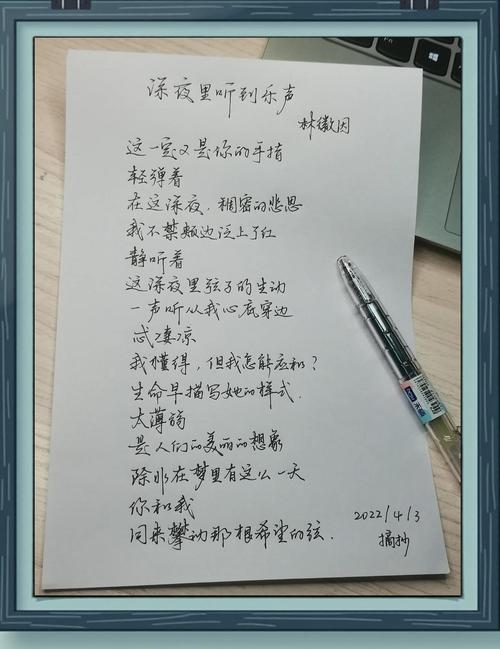 深夜里听到乐声
林徽因
这一定又是你的手指
轻弹着
在这深夜，稠密的悲思
我不禁颊边泛上了红
静听着
这深夜里弦子的生动
一声听从我心底穿过
忒凄凉
我懂得，但我怎能应和？
生命早描写她的样式.
太薄弱
是人们的美丽的想象
除非在梦里有这么一天
你和我
同来攀动那根希望的弦.
2022/4/3
摘抄